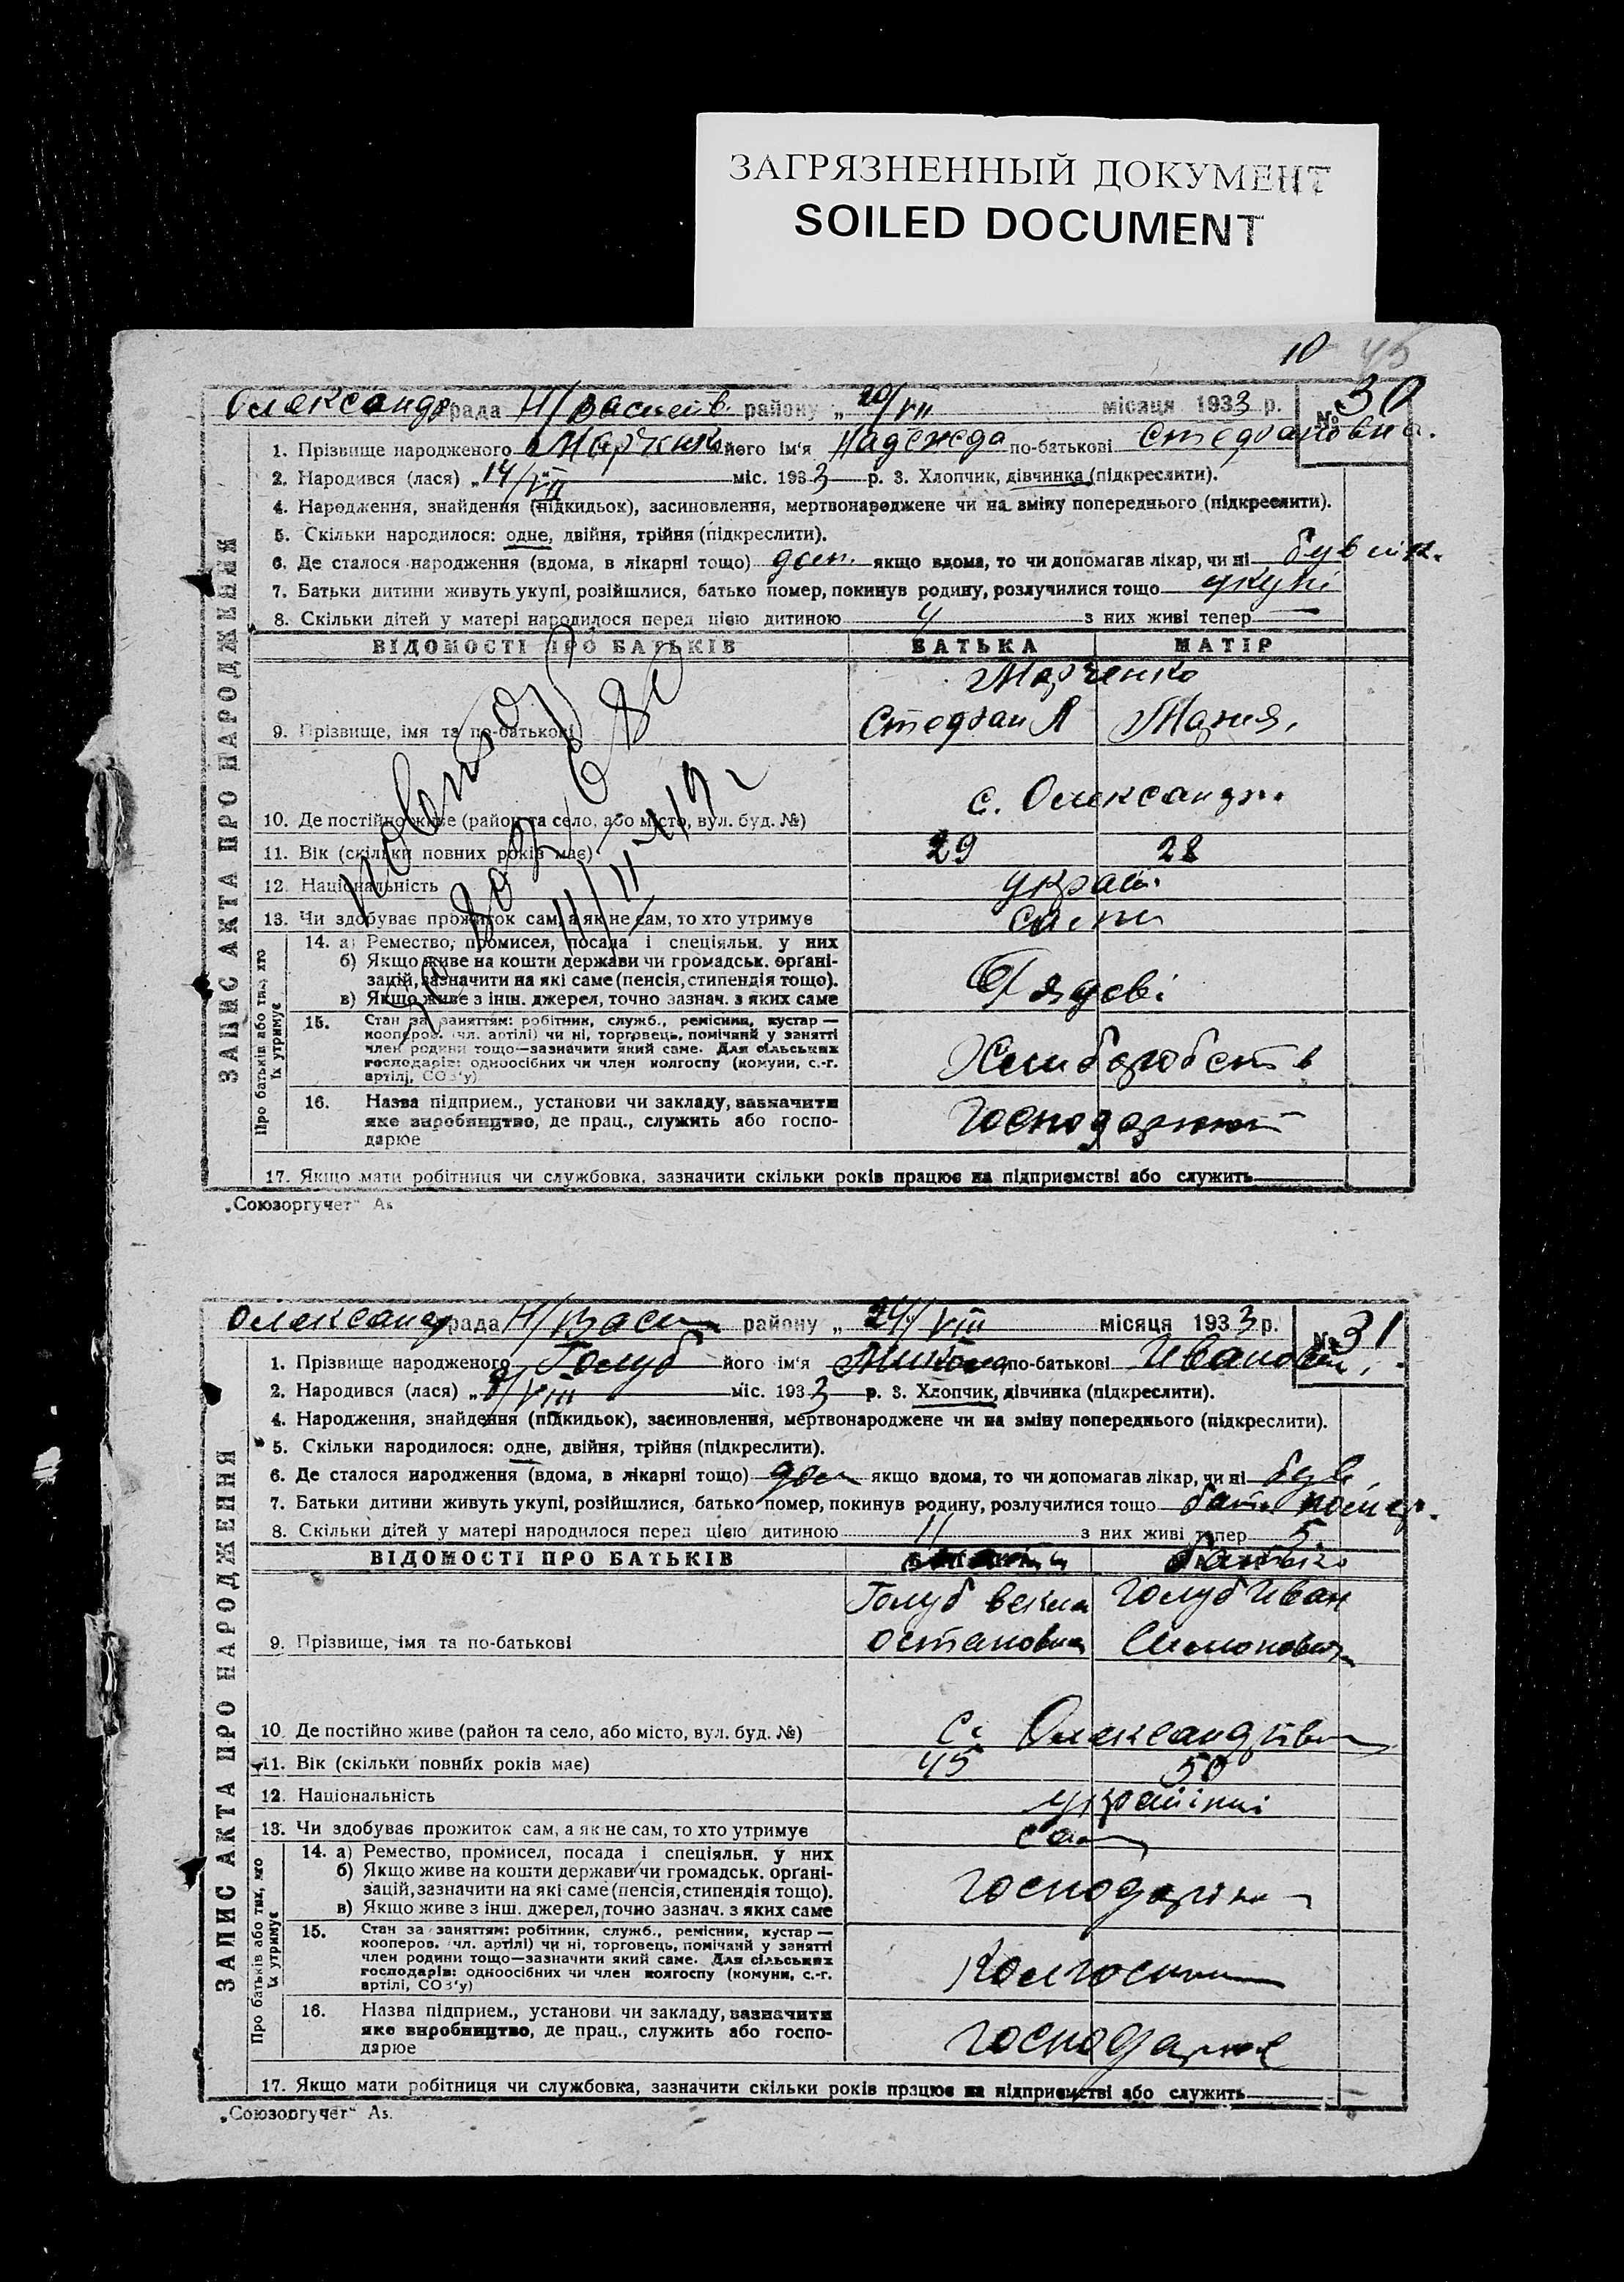 ЗАГРЯЗНЕННЫЙ ДОКУМЕНТ
SOILED DOCUMENT
10 45
Олександр рада Н/Василів району „20/VII місяця 1933 р. № 30
1. Прізвище народженого Марченко його ім'я Надежда по-батькові Стефановна.
2. Народився (лася) „14/VII міс. 1933 р. 3. Хлопчик, дівчинка (підкреслити).
4. Народження, знайдення (підкидьок), засиновлення, мертвонароджене чи на зміну попереднього (підкреслити).
5. Скільки народилося: одне, двійня, трійня (підкреслити).
6. Де сталося народження (вдома, в лікарні тощо) дом якщо вдома, то чи допомагав лікар, чи ні
7. Батьки дитини живуть укупі, розійшлися, батько помер, покинув родину, розлучилися тощо укупі
8. Скільки дітей у матері народилося перед цією дитиною 4 з них живі тепер —
ВІДОМОСТІ ПРО БАТЬКІВ БАТЬКА МАТІР
Марченко
9. Прізвище, імя та по-батькові Стефан Я Мария,
10. Де постійно живе (район та село, або місто, вул. буд. №) с. Олександр.
11. Вік (скільки повних років має) 29 28
12. Національність україн.
13. Чи здобуває прожиток сам, а як не сам, то хто утримує сами
14. а) Ремество, промисел, посада і спеціяльн. у них
б) Якщо живе на кошти держави чи громадськ. органі-
зацій, зазначити на які саме (пенсія, стипендія тощо).
в) Якщо живе з інш. джерел, точно зазнач. з яких саме
15. Стан за заняттям: робітник, служб., ремісник, кустар —
кооперов. (чл. артілі) чи ні, торговець, помічний у занятті
член родини тощо—зазначити який саме. Для сільських
господарів: одноосібних чи член колгоспу (комуни, с.-г.
артілі, СОЗ'у) Хлиборобств
16. Назва підприєм., установи чи закладу, зазначити
яке виробництво, де прац., служить або госпо-
дарює господарюют
17. Якщо мати робітниця чи службовка, зазначити скільки років працює на підприємстві або служить
ЗАПИС АКТА ПРО НАРОДЖЕННЯ
Про батьків або тих, хто
їх утримує
„Союзоргучет“ Аз.
Олександр рада Н/Васи району „24/VIII місяця 1933 р. № 31
1. Прізвище народженого Голуб його ім'я Микола по-батькові Иванович
2. Народився (лася) „VIII міс. 1933 р. 3. Хлопчик, дівчинка (підкреслити).
4. Народження, знайдення (підкидьок), засиновлення, мертвонароджене чи на зміну попереднього (підкреслити).
5. Скільки народилося: одне, двійня, трійня (підкреслити).
6. Де сталося народження (вдома, в лікарні тощо) дом якщо вдома, то чи допомагав лікар, чи ні був
7. Батьки дитини живуть укупі, розійшлися, батько помер, покинув родину, розлучилися тощо бат. помер.
8. Скільки дітей у матері народилося перед цією дитиною 11 з них живі тепер 5
ВІДОМОСТІ ПРО БАТЬКІВ батько
Голуб Векла Голуб Иван
9. Прізвище, імя та по-батькові Остаповна Симонович
10. Де постійно живе (район та село, або місто, вул. буд. №) с. Олександрівка
11. Вік (скільки повних років має) 45 50
12. Національність українці
13. Чи здобуває прожиток сам, а як не сам, то хто утримує сам
14. а) Ремество, промисел, посада і спеціяльн. у них
б) Якщо живе на кошти держави чи громадськ. органі-
зацій, зазначити на які саме (пенсія, стипендія тощо).
в) Якщо живе з інш. джерел, точно зазнач. з яких саме
15. Стан за заняттям: робітник, служб., ремісник, кустар —
кооперов. (чл. артілі) чи ні, торговець, помічний у занятті
член родини тощо—зазначити який саме. Для сільських
господарів: одноосібних чи член колгоспу (комуни, с.-г.
артілі, СОЗ'у) Колгосп
16. Назва підприєм., установи чи закладу, зазначити
яке виробництво, де прац., служить або госпо-
дарює господарює
17. Якщо мати робітниця чи службовка, зазначити скільки років працює на підприємстві або служить
ЗАПИС АКТА ПРО НАРОДЖЕННЯ
Про батьків або тих, хто
їх утримує
„Союзоргучет“ Аз.